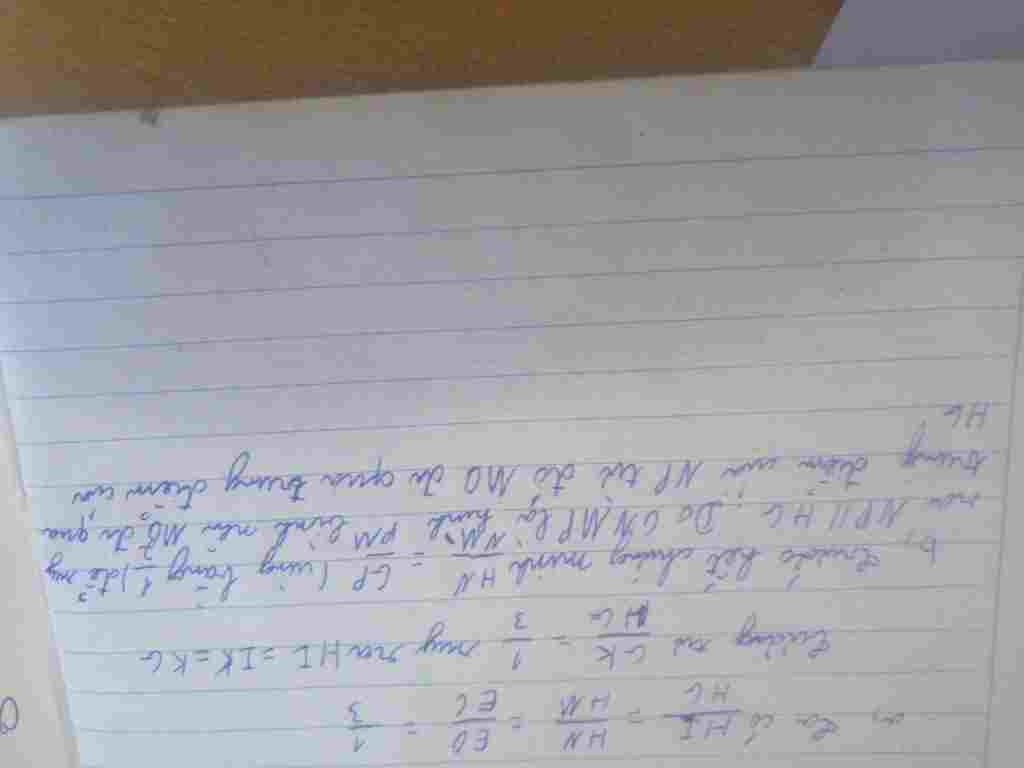 a, Ta có HI/HG = HN/HM = EO/EG = 1/3
Tương tự GK/HG = 1/3 suy ra HI = IK = KG
b, Trước hết chứng minh HN/NM = GP/PM (cùng bằng 1/2) để suy
ra NP // HG. Do ONMP là hình bình nên MO đi qua
trung điểm của NP từ đó MO đi qua trung điểm của
HG